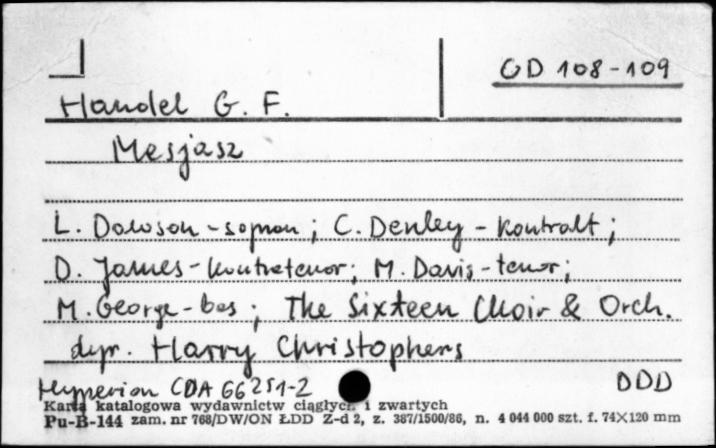 CD 108-109
Handel G. F.
Mesjasz
L. Dawson - sopran ; C. Denley - kontralt ;
D. James - kontratenor ; M. Davis - tenor ;
M. George - bas ; The Sixteen Choir & Orch.
dyr. Harry Christophers
Hyperion CDA 66251-2 DDD
Karta katalogowa wydawnictw ciągłych i zwartych
Pu-B-144 zam. nr 768/DW/ON ŁDD Z-d 2, z. 387/1500/86, n. 4 044 000 szt. f. 74×120 mm